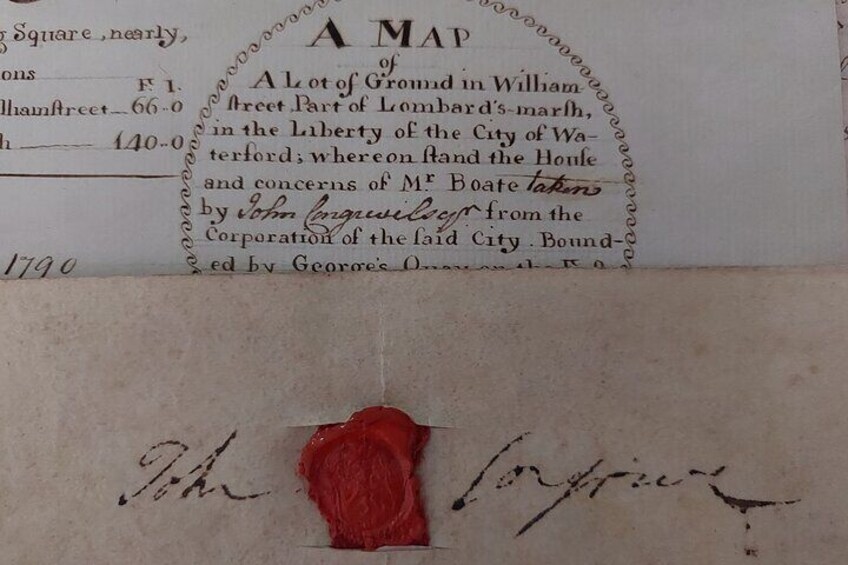 g Square, nearly,
ons
F. I.
lliamſtreet 66-0
h 140-0
1790
A MAP
of
A Lot of Ground in William-
ſtreet Part of Lombard's-marſh,
in the Liberty of the City of Wa-
terford; whereon ſtand the Houſe
and concerns of Mr Boate taken
by John Congreve Esqr from the
Corporation of the ſaid City. Bound-
ed by George's Quay on the
John Congreve